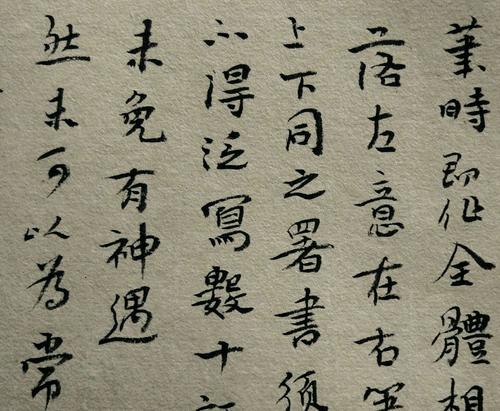 筆時即作全體相
落左意在右筆
上下同之署書須
不得泛寫數十
未免有神遇
然未可以為常